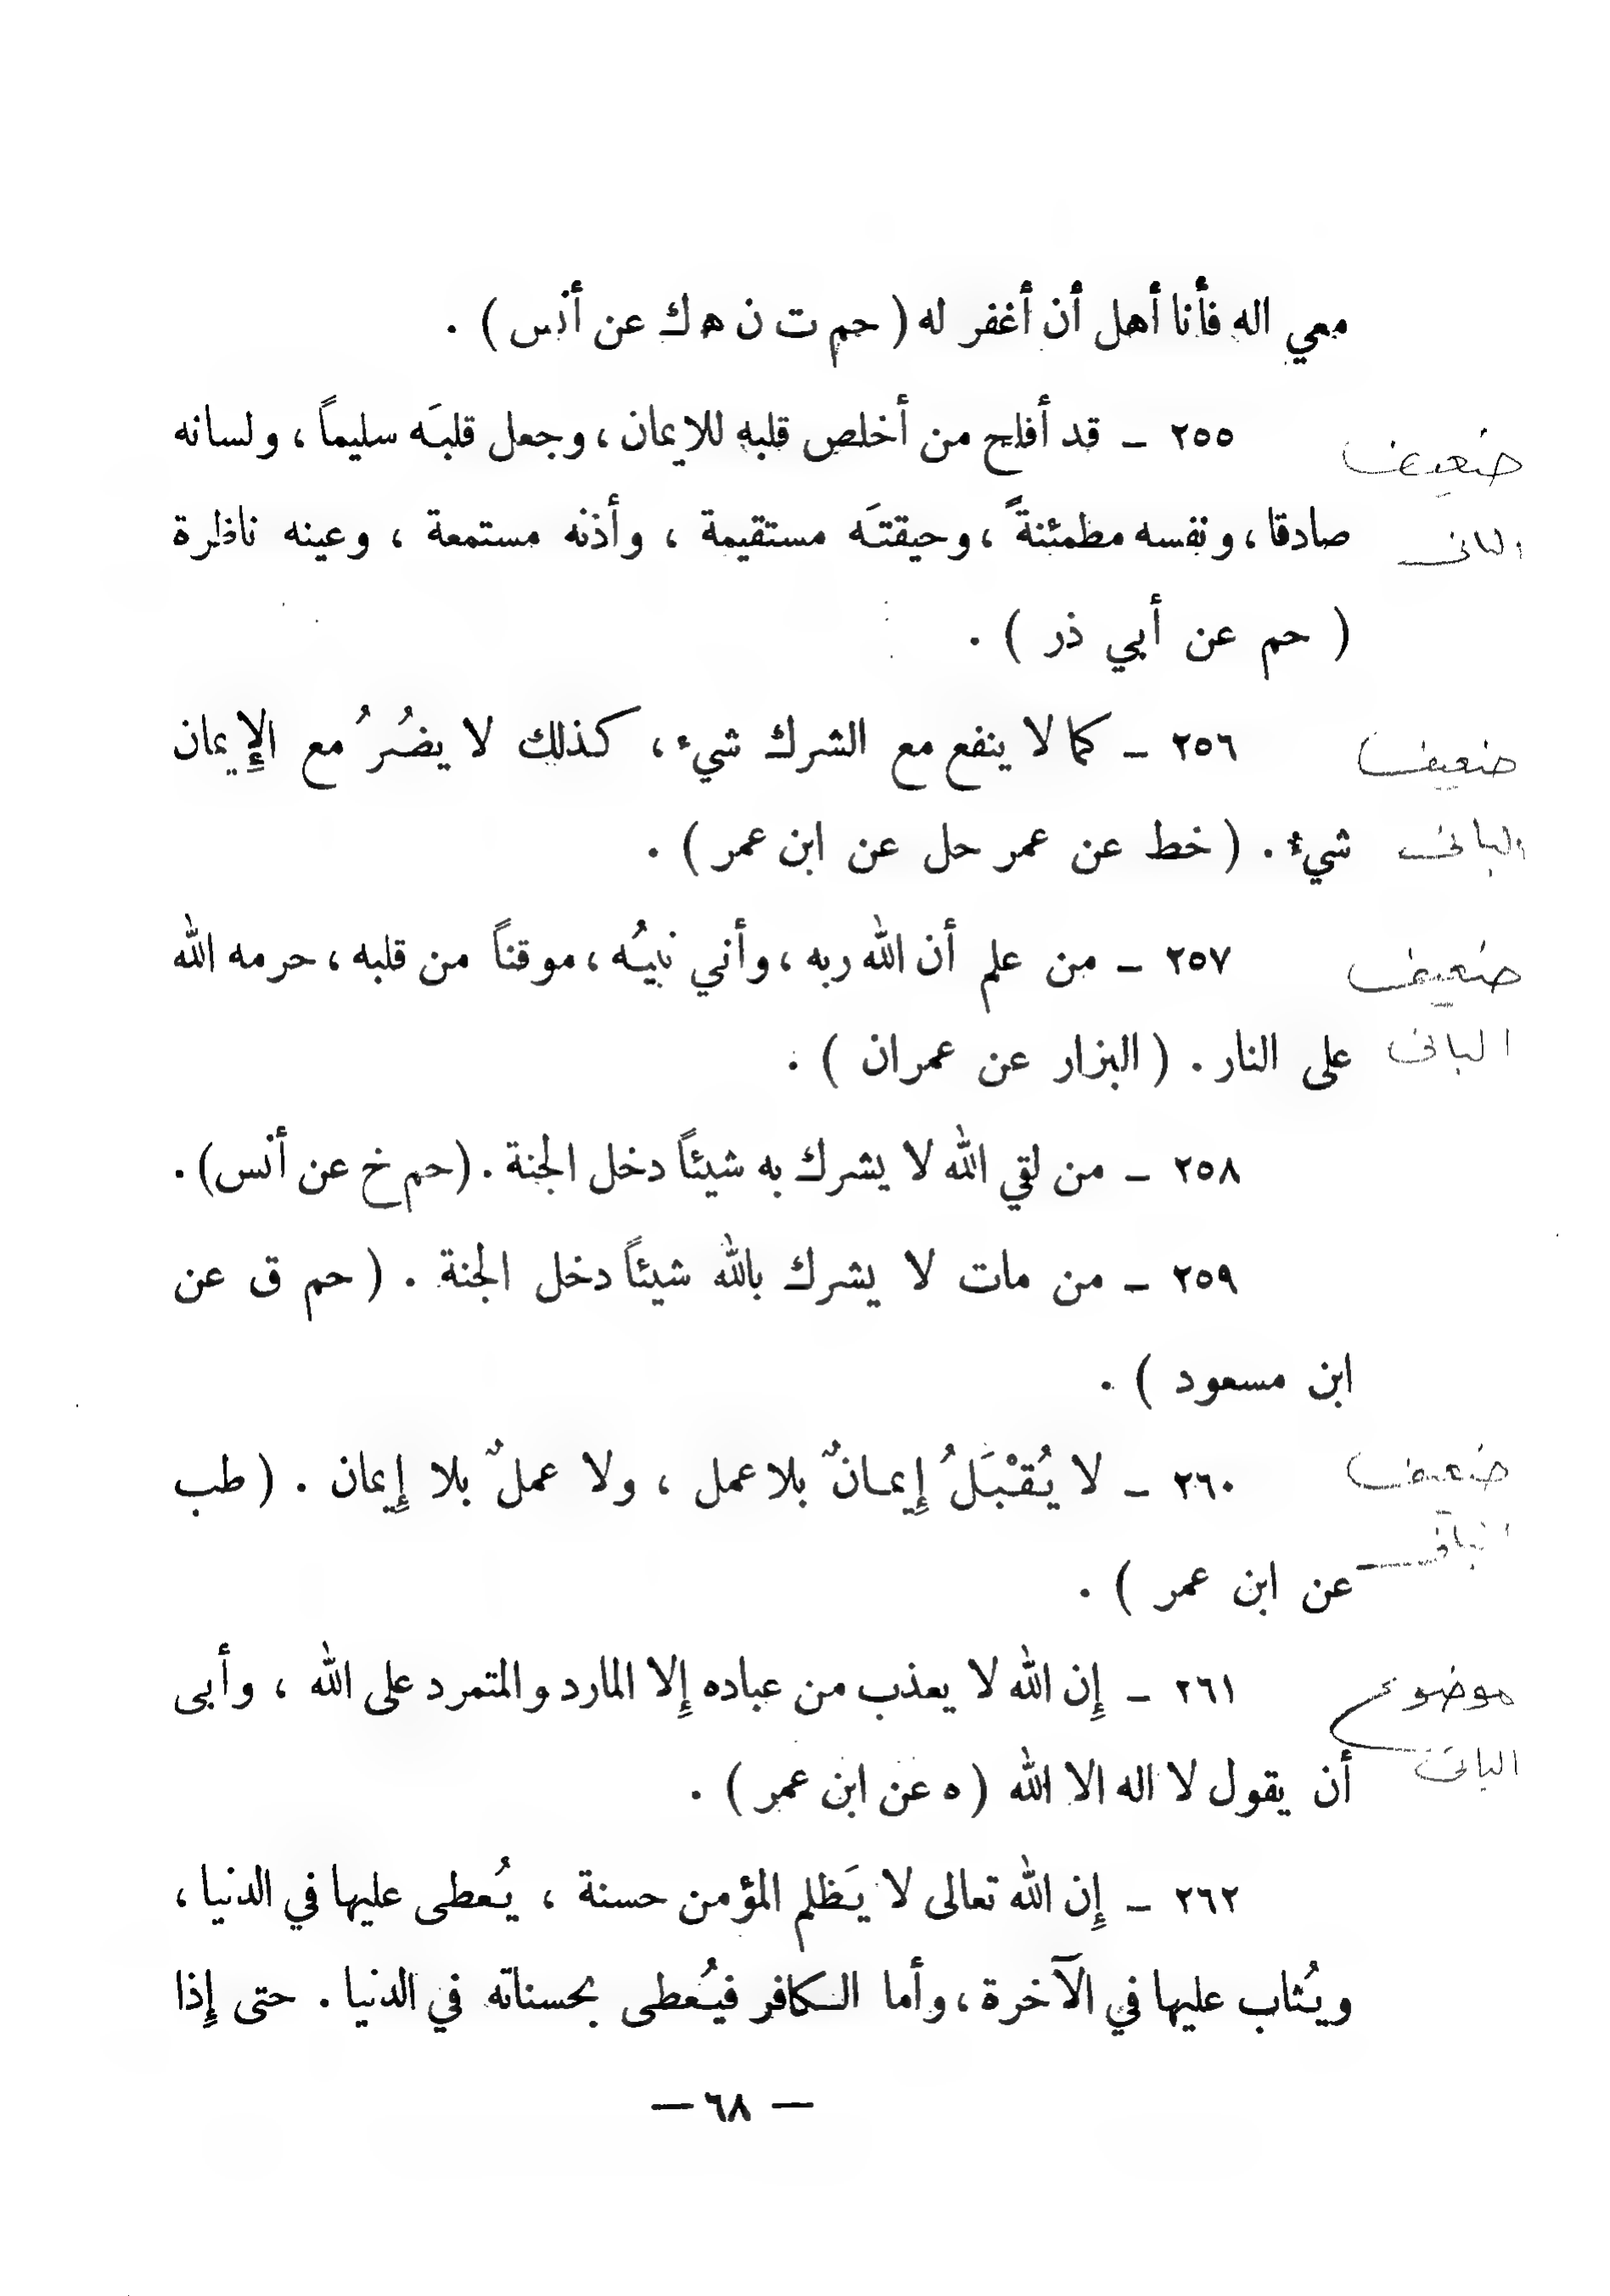 معي اله فأنا أهل أن أغفر له ( حم ت ن ه ك عن أنس ) .
٢٥٥ ـ قد أفلح من أخلص قلبه للايمان ، وجعل قلبَه سليماً ، ولسانه
ضعيف
صادقا ، ونفسه مطمئنةً ، وحيقتَه مستقيمة ، وأذنه مستمعة ، وعينه ناظرة
البانى
( حم عن أبي ذر ) .
٢٥٦ ـ كما لا ينفع مع الشرك شيء ، كذلك لا يضُرُ مع الإيمان
ضعيف
شيء . ( خط عن عمر حل عن ابن عمر ) .
البانى
٢٥٧ ـ من علم أن الله ربه ، وأني نبيُه ، موقناً من قلبه ، حرمه الله
ضعيف
على النار . ( البزار عن عمران ) .
البانى
٢٥٨ ـ من لقي الله لا يشرك به شيئاً دخل الجنة . (حم خ عن أنس) .
٢٥٩ ـ من مات لا يشرك بالله شيئاً دخل الجنة . ( حم ق عن
ابن مسعود ) .
٢٦٠ ـ لا يُقْبَلُ إِيمانٌ بلا عمل ، ولا عملٌ بلا إِيمان . ( طب
ضعيف
عن ابن عمر ) .
البانى
٢٦١ ـ إِن الله لا يعذب من عباده إِلا المارد والمتمرد على الله ، وأبى
موضوع
أن يقول لا اله الا الله ( ه عن ابن عمر ) .
البانى
٢٦٢ ـ إِن الله تعالى لا يَظلم المؤمن حسنة ، يُعطى عليها في الدنيا ،
ويُثاب عليها في الآخرة ، وأما الكافر فيُعطى بحسناته في الدنيا . حتى إِذا
— ٦٨ —